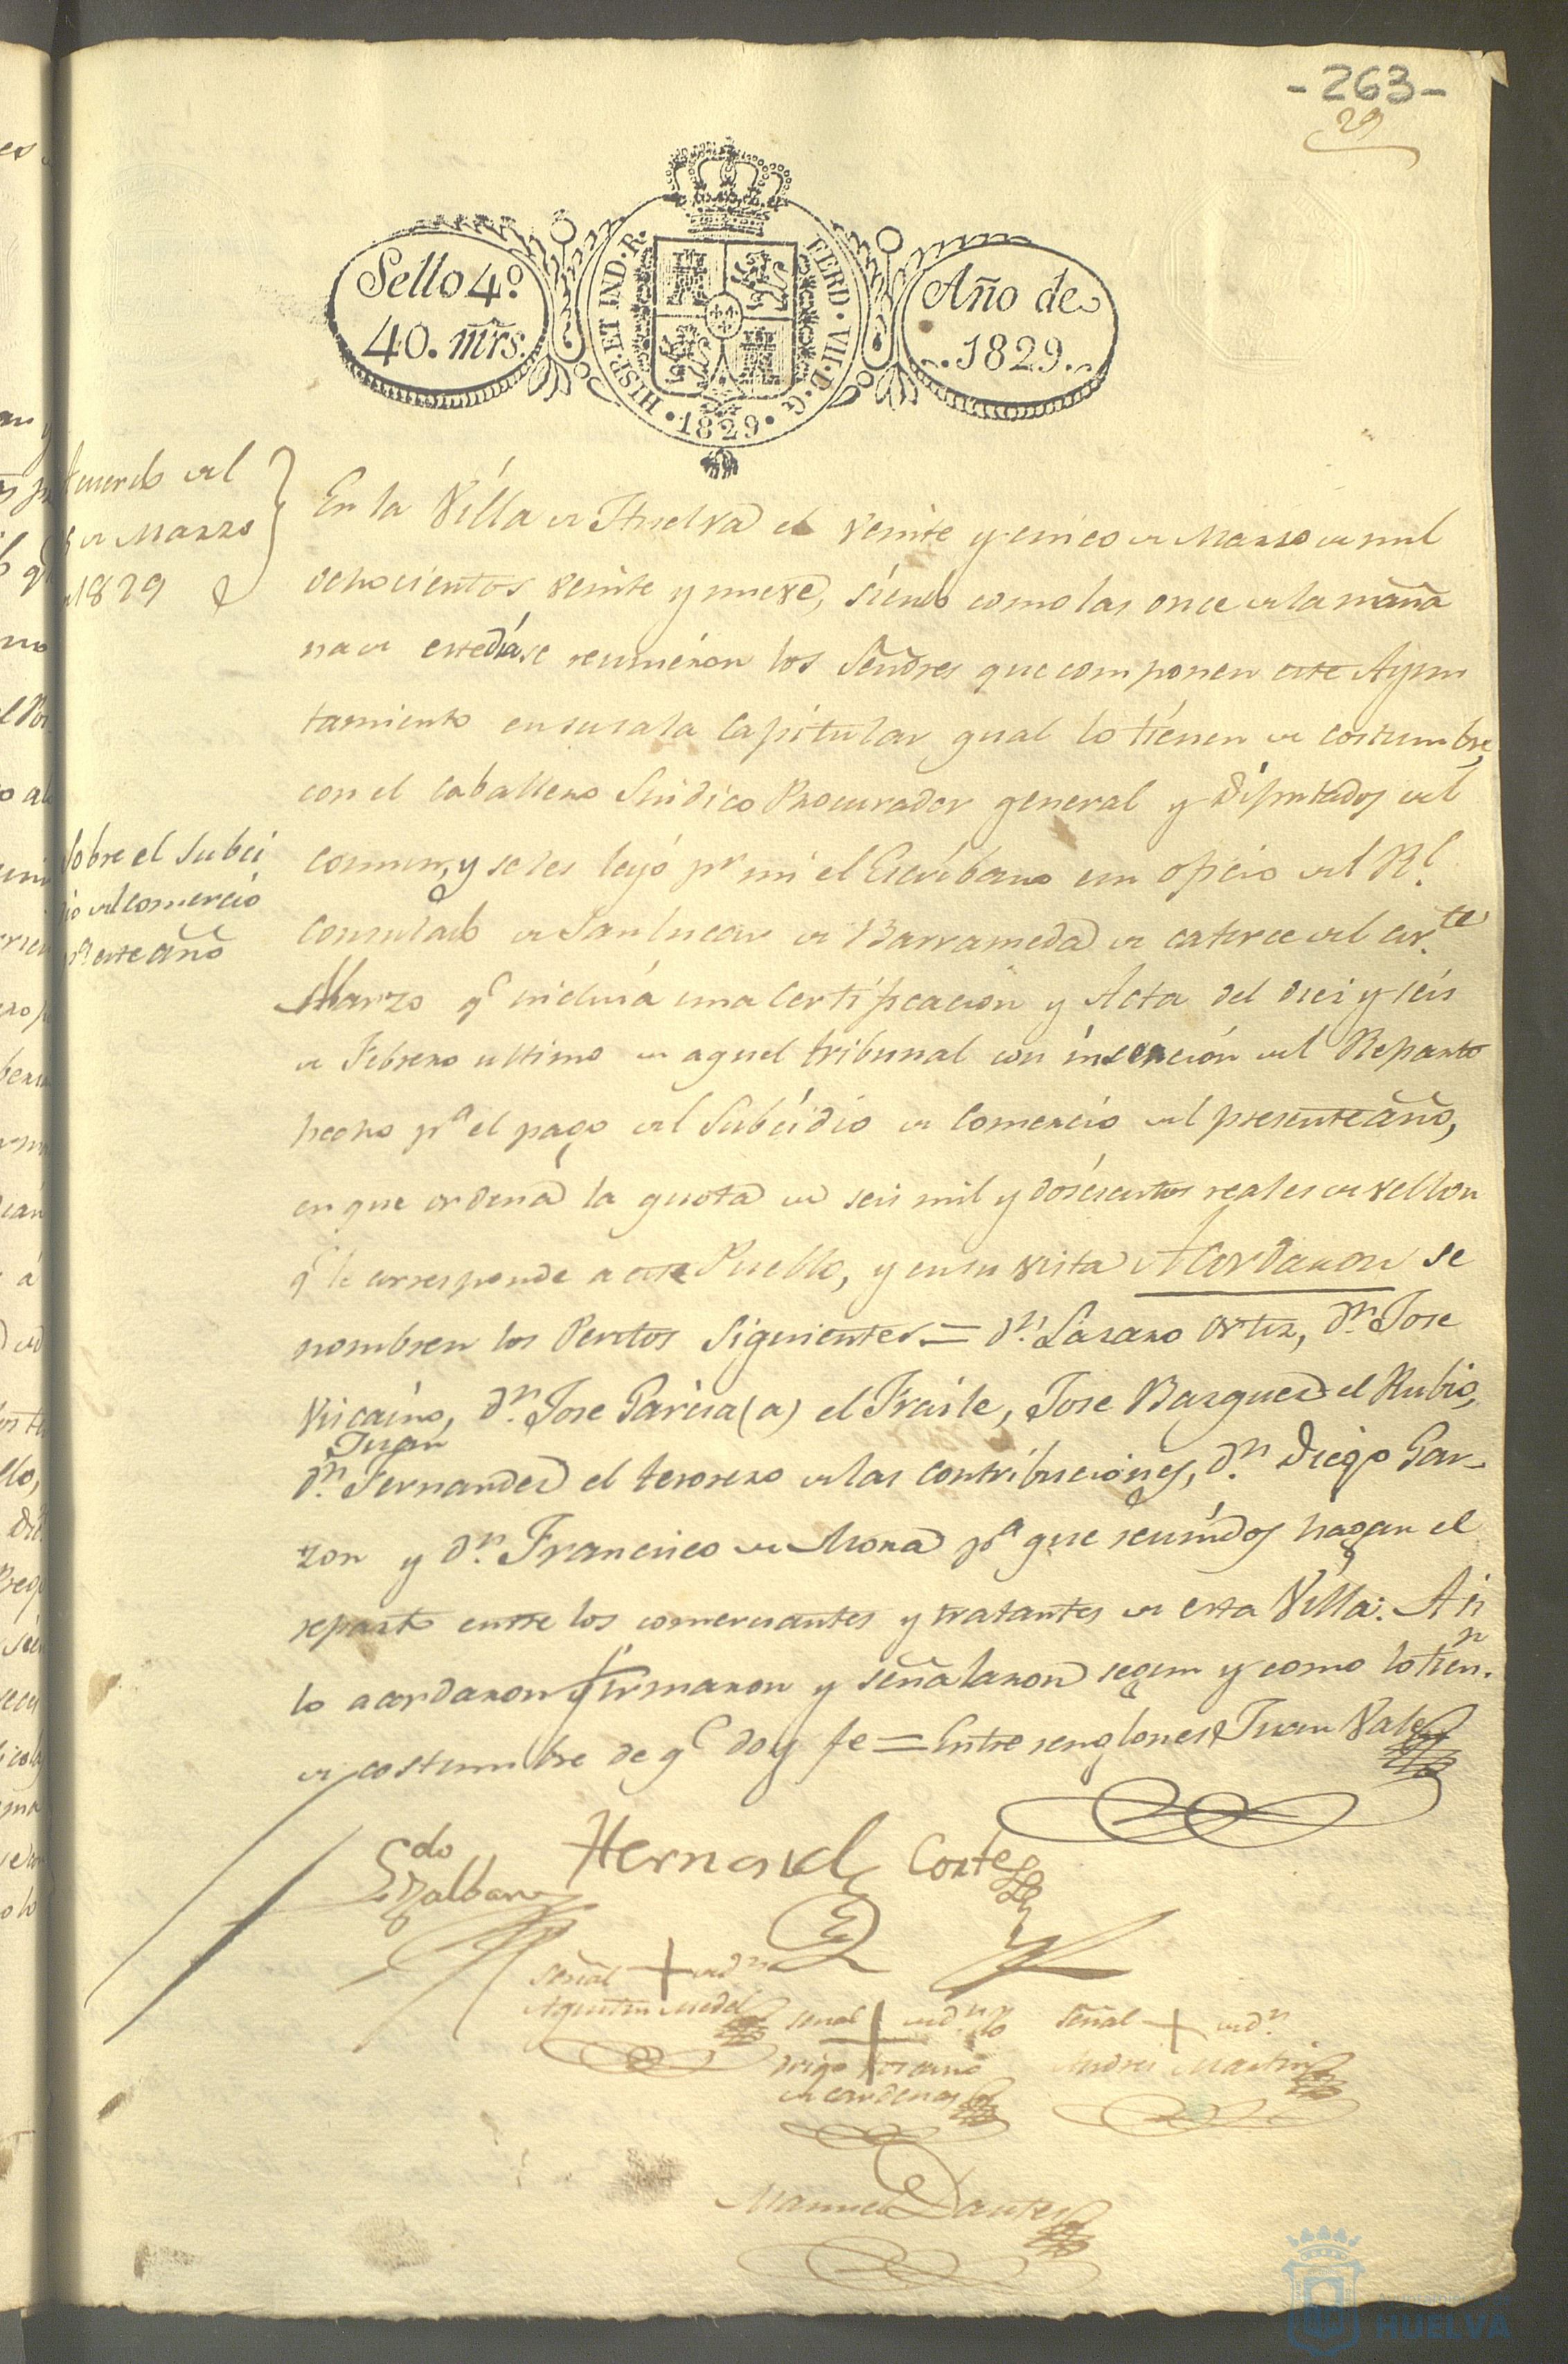 -263-
29
Sello 4º
40. mrs.
HISP. ET IND. R.
FERD. VII. D. G.
1829
Año de
1829.
Acuerdo del
de Marzo
1829
En la Villa de Huelva el veinte y cinco de Marzo de mil
ochocientos veinte y nueve, siendo como las once de la maña
na de este día se reunieron los Señores que componen este Ayun
tamiento en su sala Capitular qual lo tienen de costumbre,
con el Caballero Sindico Procurador general y Diputados del
Sobre el Subci
dio del comercio
pª este año
comun, y se les leyó pr mi el Escribano un oficio del Rl.
Consulado de Sanlucar de Barrameda de catorce del corte
Marzo qe incluía una Certificacion y Acta del diez y seis
de Febrero ultimo de aquel tribunal con inserción del Reparto
hecho pª el pago del Subcidio de Comercio del presente año,
en que ordena la quota de seis mil y doscientos reales de vellon
qe le corresponde a este Pueblo, y en su vista Acordaron se
nombren los Peritos siguientes = dn. Lázaro Ortiz, dn. Jose
Viscaíno, dn. Jose Garcia (a) el Fraile, Jose Bazquez el Rubio,
Juan
dn. Fernandez el tesorero de las contribuciones, dn. Diego Gar-
zon y dn. Francisco de Mora pª que reunidos hagan el
reparto entre los comerciantes y tratantes de esta Villa. Asi
lo acordaron firmaron y señalaron segun y como lo tienn.
de costumbre de qe doy fe = Entre renglones Juan Vale
Ldo
Hernand Cortes
Señal + de dn
Agustin Medel
Señal + de dn
Diego
de Cardenas
Señal + de dn.
Andres Martin
Manuel Dantes
HUELVA